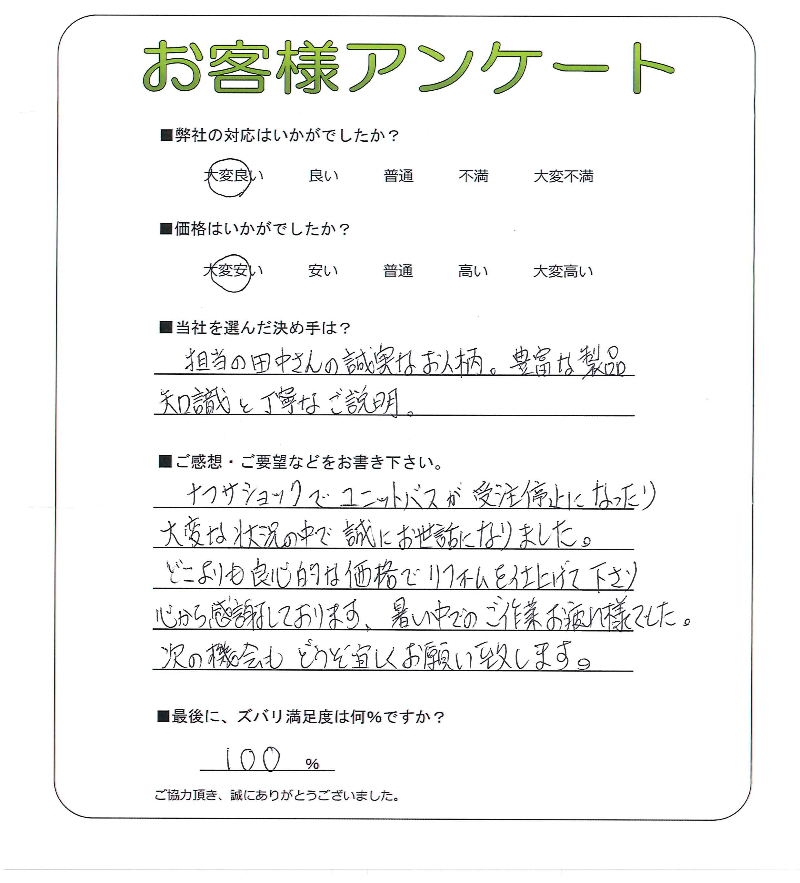 お客様アンケート
■弊社の対応はいかがでしたか？
大変良い 良い 普通 不満 大変不満
■価格はいかがでしたか？
大変安い 安い 普通 高い 大変高い
■当社を選んだ決め手は？
担当の田中さんの誠実なお人柄。豊富な製品
知識と丁寧なご説明。
■ご感想・ご要望などをお書き下さい。
ナフサショックでユニットバスが受注停止になったり
大変な状況の中で誠にお世話になりました。
どこよりも良心的な価格でリフォームを仕上げて下さり
心から感謝しております、暑い中でのご作業お疲れ様でした。
次の機会もどうぞ宜しくお願い致します。
■最後に、ズバリ満足度は何%ですか？
100 %
ご協力頂き、誠にありがとうございました。